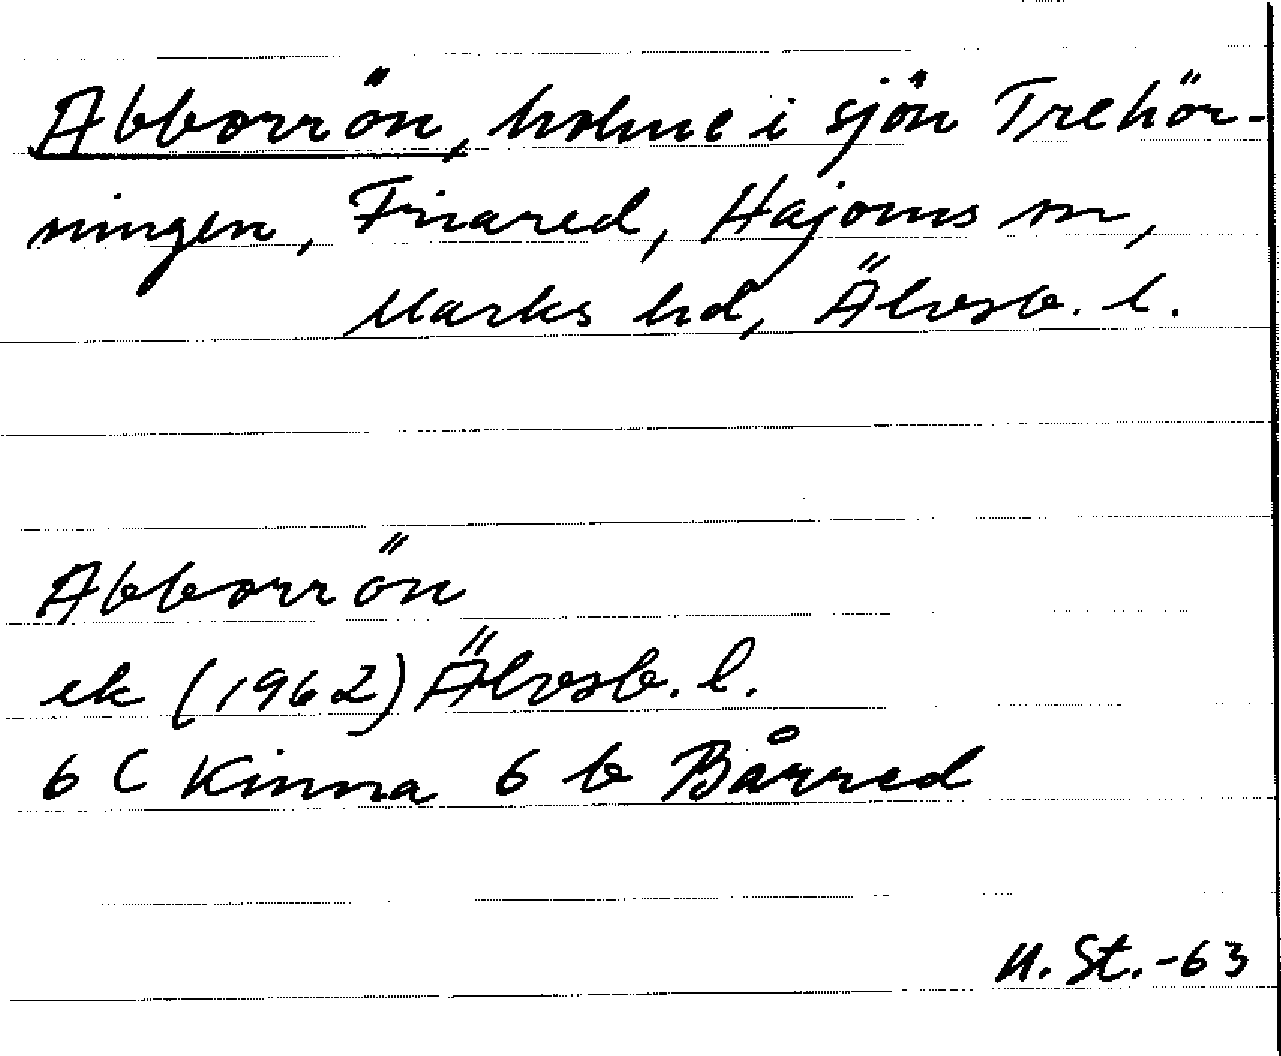 Abborrön, holme i sjön Trehör-
ningen, Frared, Hajoms sn,
Marks hd, Älvsb. l.
Abborrön
ek (1962) Älvsb. l.
6 C Kinna 6 b Bårred
U. St. -63